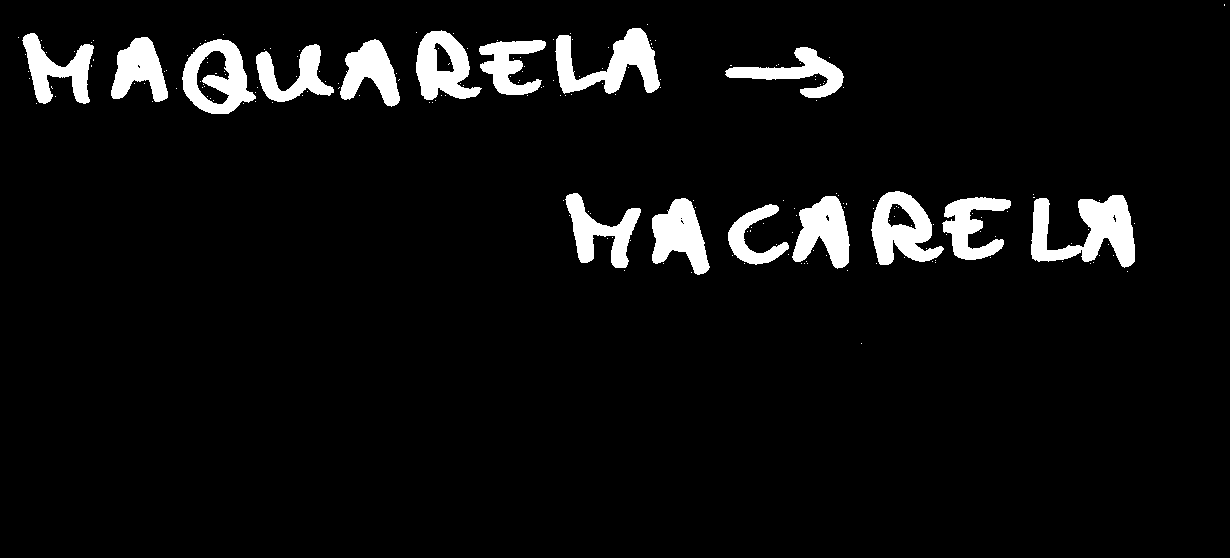 MAQUARELA →
MACARELA